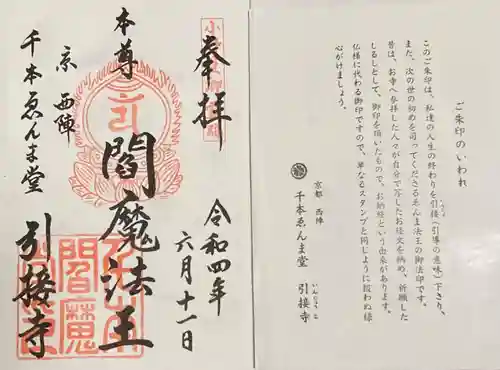 奉拝
本尊
閻魔法王
京 西陣
千本ゑんま堂
引接寺
令和四年
六月十一日
ご朱印のいわれ
このご朱印は、私達の人生の終わりを引接(引導の意味)下さり、
また、次の世の初めを司ってくださるゑんま法王の御法印です。
昔は、お寺へ参拝した人々が自分で写したお経文を納め、祈願した
しるしとして、御印を頂いたもので、お納経という由来があります。
仏様に代わる御印ですので、単なるスタンプと同じように扱わぬ様
心がけましょう。
京都 西陣
千本ゑんま堂 引接寺
いんじょうじ